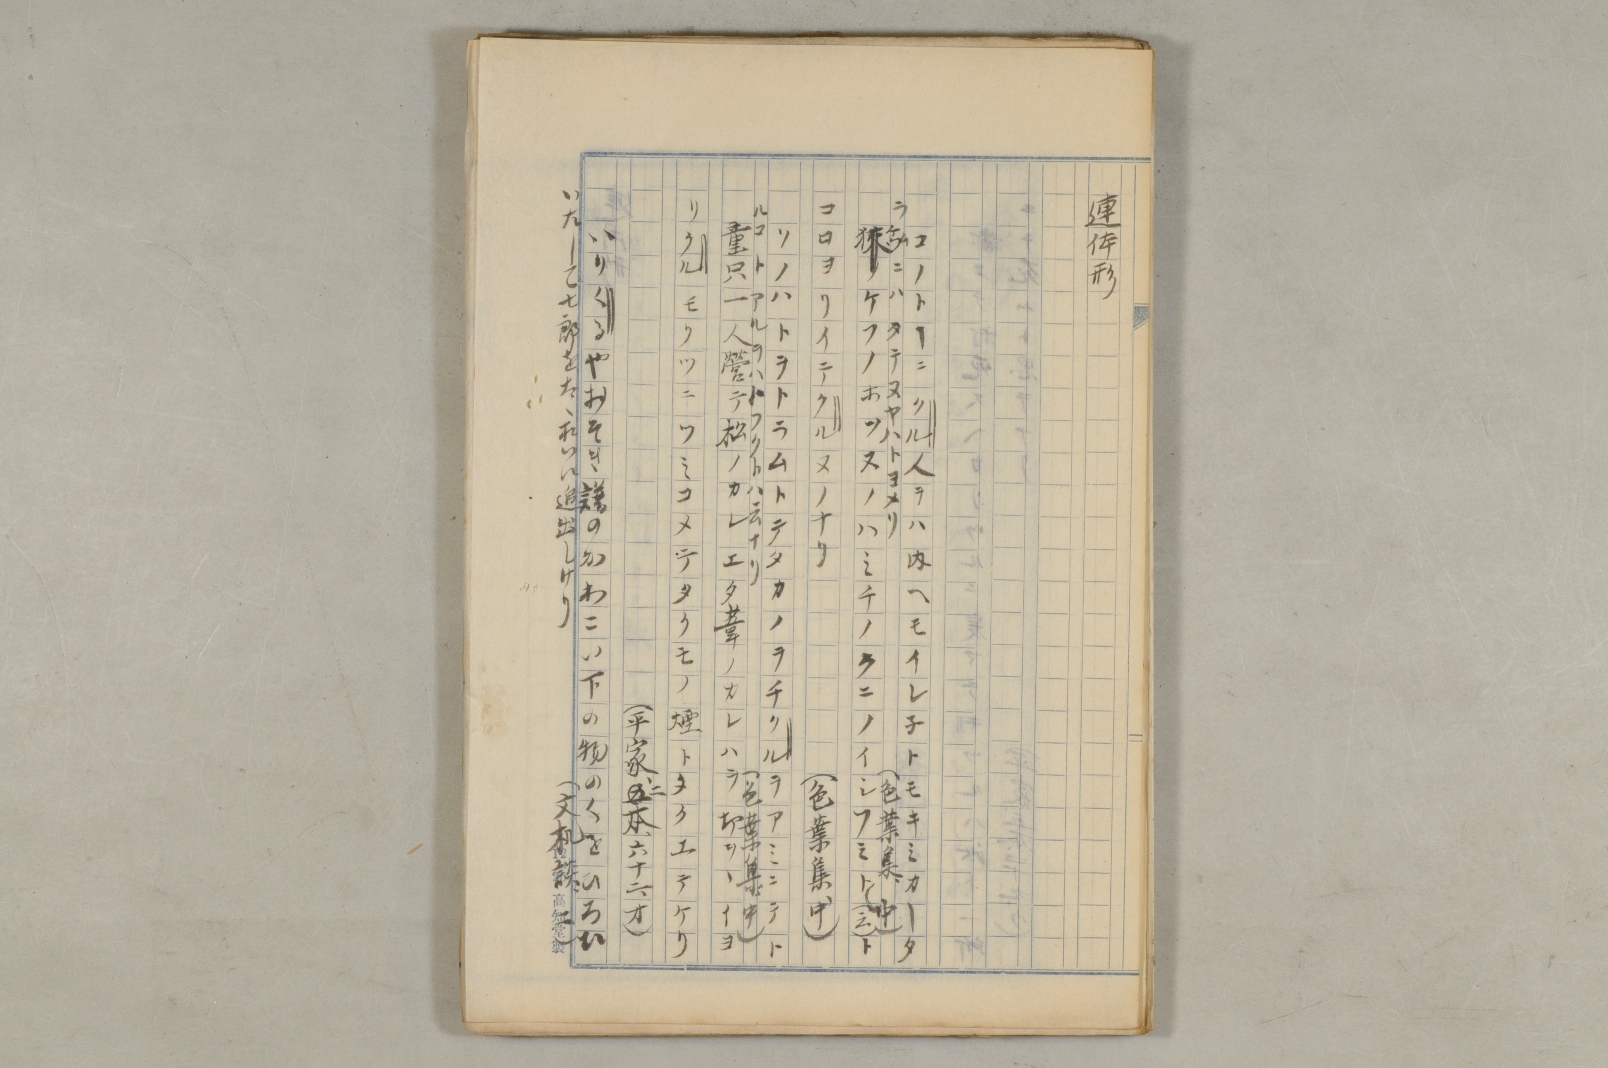 連体形
コノトーニクル人ヲハ内ヘモイレ子トモキミカータ
ラムニハタテヌヤハトヨメリ
(色葉集、中)
狭ノケフノホソヌノハミチノクニノイシフミト(云)ト
コロヨリイテクルヌノナリ
(色葉集、中)
ソノハトヲトラムトテタカノヲチクルヲアミニテト
ルコトアルヲハトフクトハ云ナリ
(色葉集、中)
童只一人営テ松ノカレエタ葦ノカレハヲ イヨ
リクルモクツニツミコメテタクモノ煙トタクエテケリ
(平家、二本、六十六オ)
いりくるやおそき のかわこい下の物のくをひろひ
いたして七郎をたゝおいに追出しけり
(文机談、二)
高知堂製